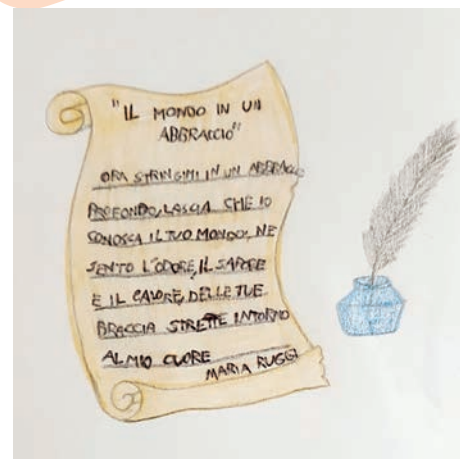 "IL MONDO IN UN
ABBRACCIO"
ORA STRINGIMI IN UN ABBRACCIO
PROFONDO, LASCIA CHE IO
CONOSCA IL TUO MONDO, NE
SENTO L'ODORE, IL SAPORE
E IL CALORE, DELLE TUE
BRACCIA STRETTE INTORNO
AL MIO CUORE
MARIA RUGGI